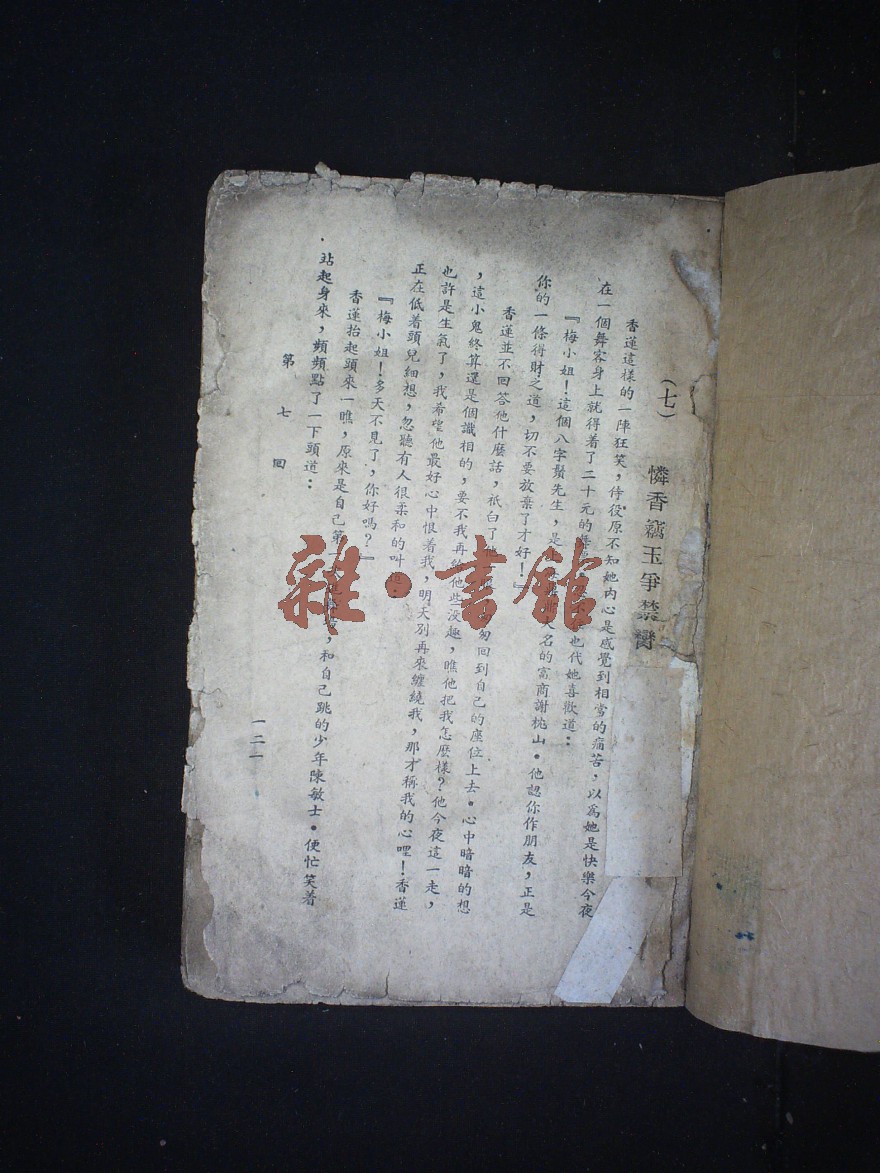 （七）　憐香竊玉爭禁臠
香蓮這樣的一陣狂笑，侍役原不知她內心是感覺到相當的痛苦，以爲她是快樂今夜
在一個舞客身上就得着了二十元的 也代她喜歡道：
『梅小姐！這個八字鬚先生，是 大名的富商謝桃山。他認你作朋友，正是
你的一條得財之道，切不要放棄了才好！』
香蓮並不回答他什麼話，祇白了 匆回到自己的座位上去。心中暗暗的想
，這小鬼終算還是個識相的，要不我再給他些没趣，瞧他把我怎麼樣？他今夜這一走，
也許是生氣了，我希望他最好心中恨着我，明天別再來纏繞我，那才稱我的心哩！香蓮
正在低着頭兒細想，忽聽有人很柔和的叫道：
『梅小姐！多天不見了，你好嗎？』
香蓮抬起頭來一瞧，原來是自己第一 ，和自己跳的少年陳敏士。便忙笑着
站起身來，頻頻點了一下頭道：
第七回
一二一
雜·書館